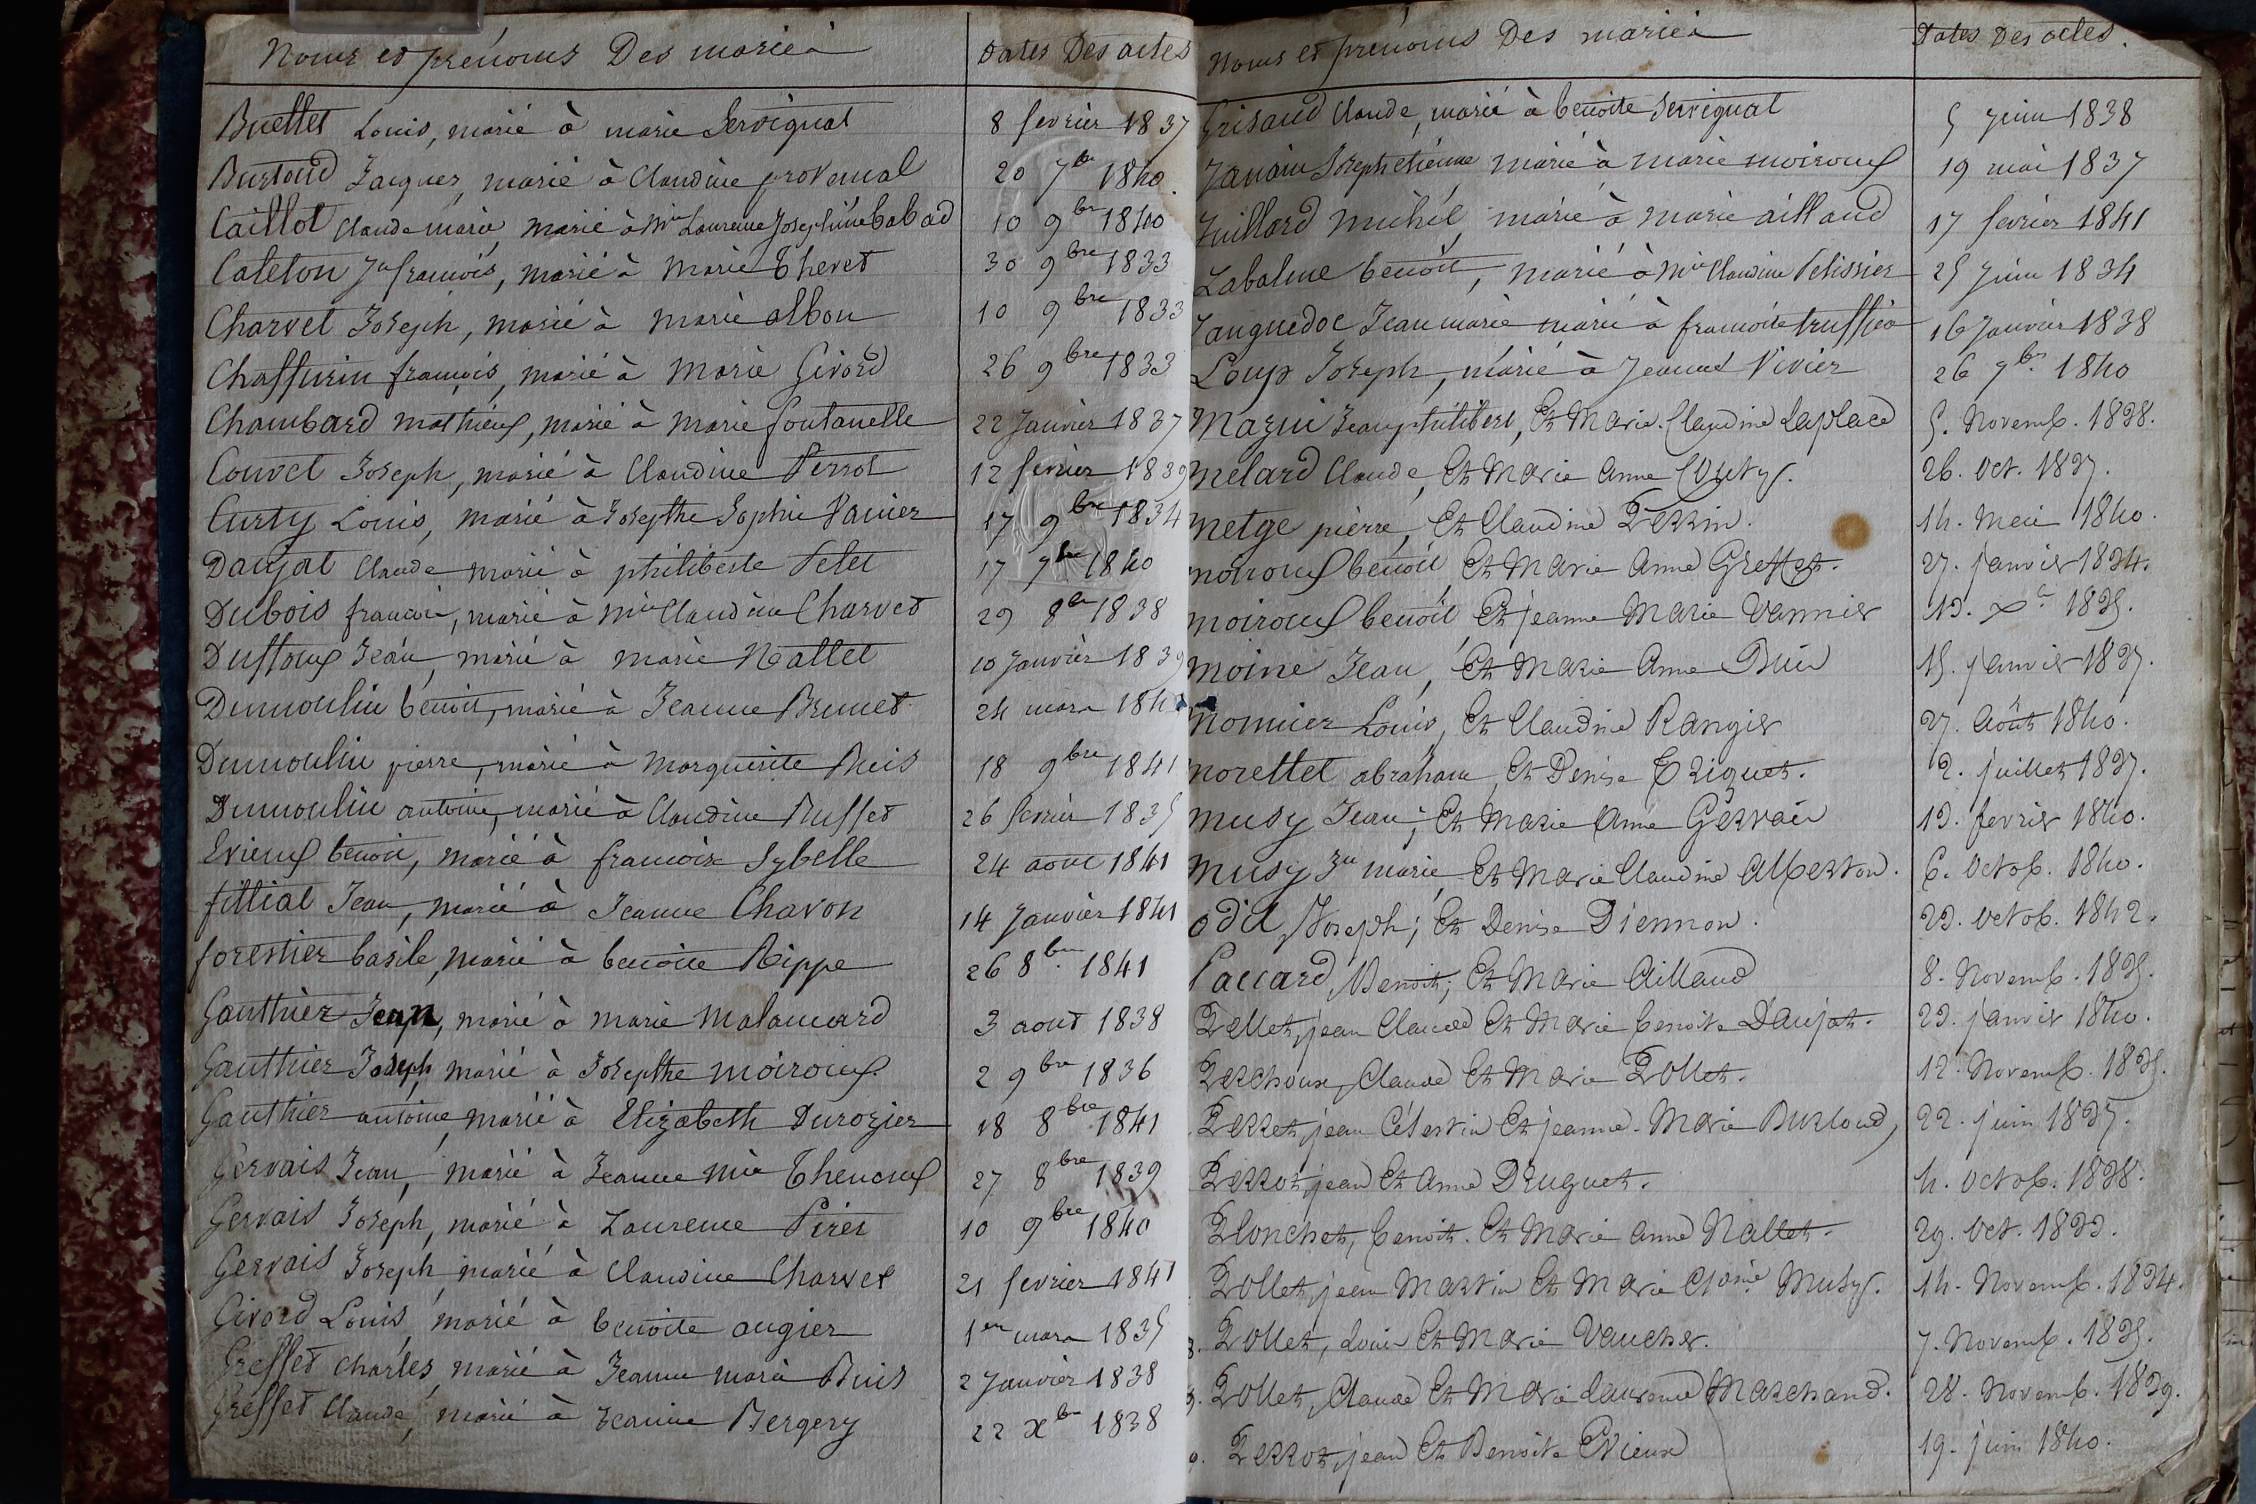 Noms et prénoms Des mariés Dates Des actes
Buellet Louis, marié à marie Servignat 8 fevrier 1837
Burtoud Jacques, marié à Claudine provençal 20 7bre 1840.
Caillot Claude marie, marié à Mie Laurence Josephine babad 10 9bre 1840
Caleton Jn françois, marié à Marie Thevet 30 9bre 1833
Charvet Joseph, marié à marie albon 10 9bre 1833
Chaffurin françois, marié à Marie Givord 26 9bre 1833
Chambard mathieux, marié à Marie fontanelle 22 Janvier 1837
Couvet Joseph, marié à Claudine Perrot 12 fevrier 1839
Curty Louis, marié à Josephe Sophie Vanier 17 9bre 1834
Daujat Claude marié à philiberte Pelet 17 7bre 1840
Dubois françois, marié à Mie Claudine Charvet 29 8bre 1838
Duffoux Jean, marié à marie Nallet 10 Janvier 1839
Dumoulin benoit, marié à Jeanne Brunet 24 mars
Dumoulin pierre, marié à Marguerite Buis 18 9bre 1841
Dumoulin antoine, marié à Claudine Buffet 26 fevrier 1835
Evieux benoit, marié à françoise Sybelle 24 aout 1841
fillial Jean, marié à Jeanne Chavon 14 Janvier 1841
forestier basile, marié à benoite Rippe 26 8bre 1841
Gauthier Jean, marié à marie Malancard 3 aout 1838
Gauthier Joseph, marié à Josephe moiroux 2 9bre 1836
Gauthier antoine, marié à Elizabeth Durozier 18 8bre 1841
Gervais Jean, marié à Jeanne Mie Thenoux 27 8bre 1839
Gervais Joseph, marié à Laurence Piret 10 9bre 1840
Gervais Joseph marié à Claudine Charvet 21 fevrier 1841
Givord Louis marié à benoite augier 1er mars 1835
Greffet Charles, marié à Jeanne marie Buis 2 Janvier 1838
Greffet Claude, marié à Jeanne Bergery 22 Xbre 1838
Noms et prénoms Des mariés Dates Des actes.
Grisaud Claude, marié à benoite Servignat 5 Juin 1838
Janain Joseph etienne marié à Marie moiroux 19 mai 1837
Juillard Michel, marié à Marie aillaud 17 fevrier 1841
Labalme benoit, marié à Mie Claudine Pelissier 25 Juin 1834
Languedoc Jean marie marié à françoise truffier 16 Janvier 1838
Loup Joseph, marié à Jeanne Vivier 26 7bre 1840
Mazui Jean philibert, Et Marie Claudine Laplace 5. Novemb. 1838.
Melard Claude, Et Marie Anne Couty. 26. Oct. 1837.
Metge pierre, Et Claudine Perrin. 14. Mai 1840.
Moiroux benoit, Et Marie Anne Greffet. 27. janvier 1834.
Moiroux benoit Et jeanne Marie Vannier 13. Xe 1835.
Moine Jean, Et Marie Anne Buis 15. janvier 1837.
Monnier Louis, Et Claudine Rangier 27. Août 1840.
Morellet abraham, Et Denise Triquet. 2. juillet 1837.
Musy Jean; Et Marie Anne Gervais 13. fevrier 1840.
Musy Jn marie, Et Marie Claudine Alberton. 6. Octob. 1840.
Odil, Joseph; Et Denise Diennon. 23. octob. 1842.
Paccard, Benoit; Et Marie Aillaud 8. Novemb. 1835.
Pellet, jean Claude Et Marie benoite Daujat. 23. janvier 1840.
Perchoux, Claude Et Marie Pollet. 12. Novemb. 1835.
Perret, jean Célestin Et jeanne-Marie Burtoud, 22. juin 1837.
Perrot, jean Et Anne Druguet. 4. Octob. 1838.
Plonchet, benoit. Et Marie Anne Nallet. 29. Oct. 1833.
Pollet, jean Martin Et Marie Musy. 14. Novemb. 1834.
Pollet, Louis Et Marie Vaucher. 7. Novemb. 1835.
Pollet, Claude Et Marie laurence Marchand. 28. Novemb. 1839.
Perrot, jean Et Benoite Evieux 19. juin 1840.